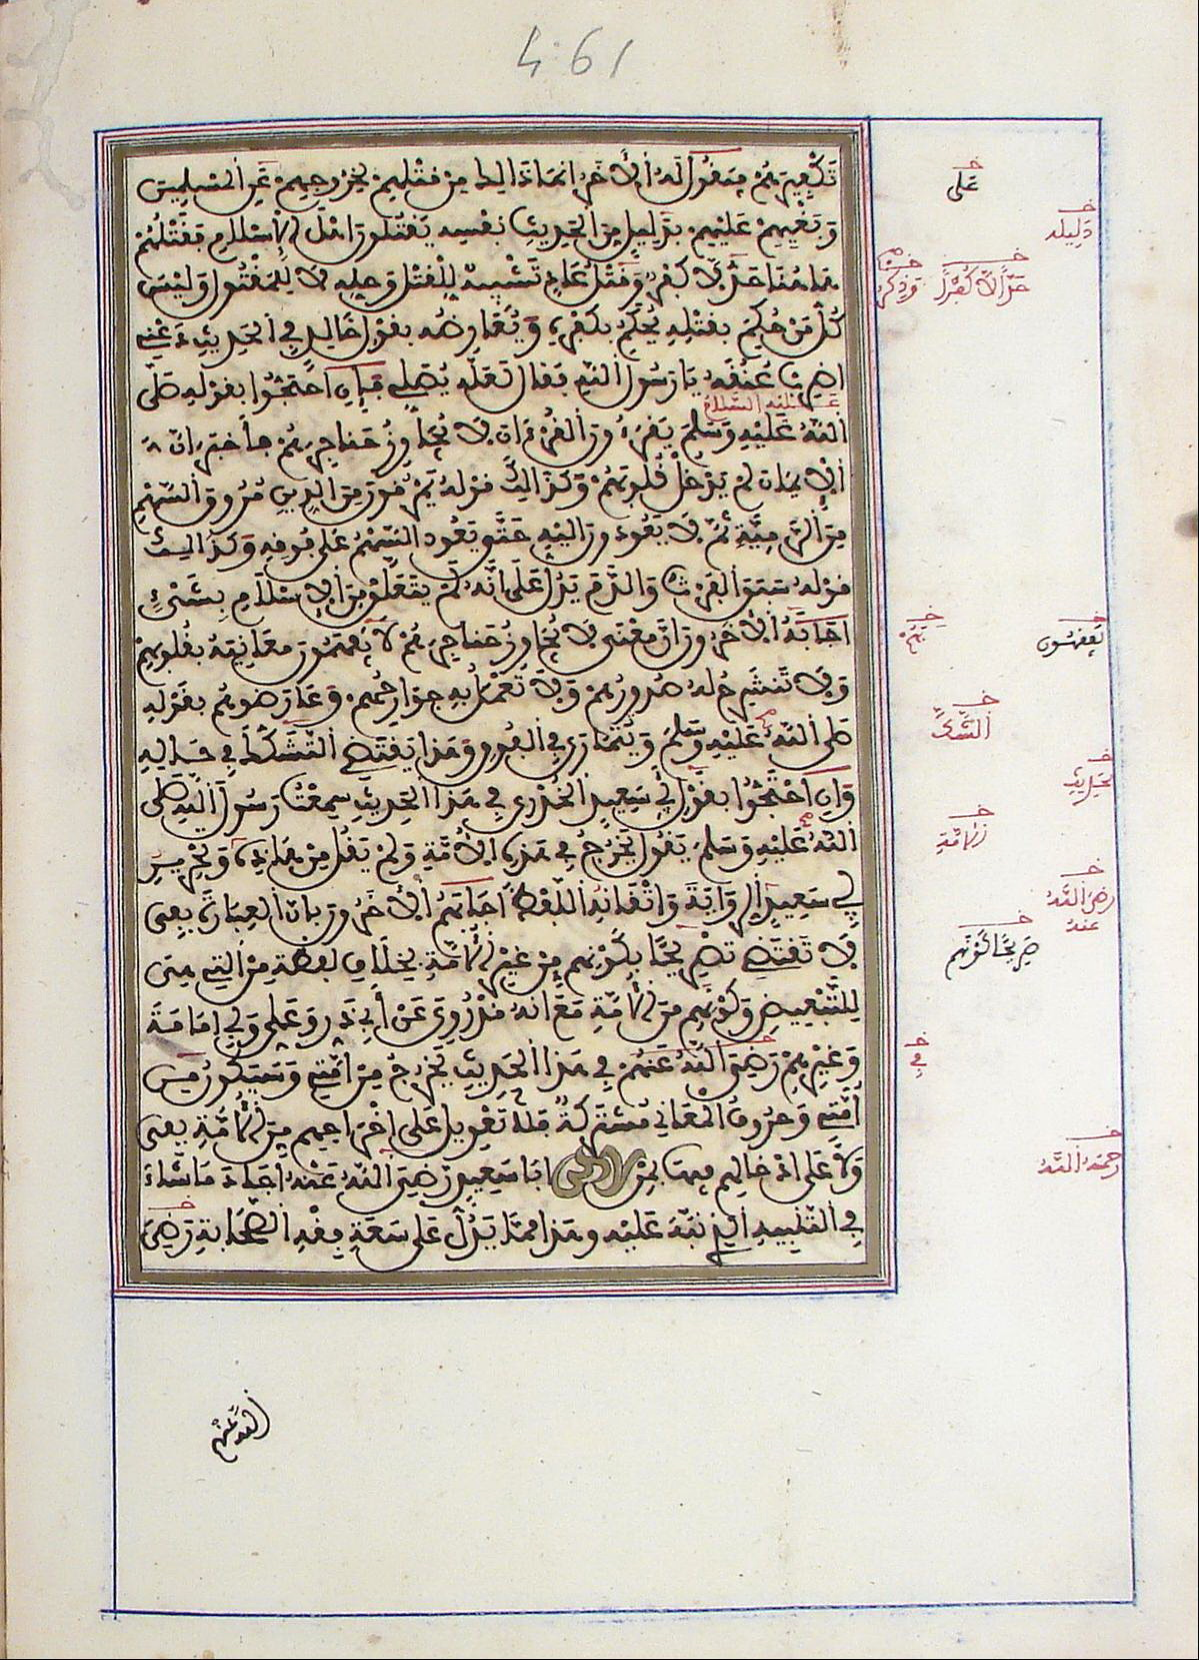 461
تكفيرهم فيقول له الآخر انما ذالك من قتلهم لخروجهم عن المسلمين
وبغيهم عليهم بدليل من الحديث نفسه يقتلون اهل الاسلام فقتلهم
هاهنا حد لا كفر وذكر عاد تشبيه للقتل وحله لا للمقتول وليس
كل من حكم بقتله يحكم بكفره ويعارضه بقول خالد في الحديث دعني
اضرب عنقه يا رسول الله فقال لعله يصلي فإن احتجوا بقوله صلى
عليه السلام
الله عليه وسلم يقرءون القرءان لا يجاوز حناجرهم فأخبر ان
الايمان لم يدخل قلوبهم وكذالك قوله يمرقون من الدين مروق السهم
من الرمية ثم لا يعودون اليه حتى يعود السهم على فوقه وكذالك
قوله سبق الفرث والدم يدل على انه لم يتعلق من الاسلام بشيء
اجابه الآخرون ان معنى لا يجاوز حناجرهم لا يفهمون معانيه بقلوبهم
ولا تنشرح له صدورهم ولا تعمل به جوارحهم وعارضوهم بقوله
صلى الله عليه وسلم ويتمارى في الفوق وهذا يقتضي التشكك في حاله
وان احتجوا بقول ابي سعيد الخدري في هذا الحديث سمعت رسول الله صلى
الله عليه وسلم يقول يخرج في هذه الامة ولم يقل من هذه وتحرير
ابي سعيد الرواية واتقانه اللفظ اجابهم الآخرون بان العبارة بفي
لا تقتضي تصريحا بكونهم من غير الامة بخلاف لفظة من التي هي
للتبعيض وكونهم من الامة مع انه قد روي عن ابي ذر وعلي وابي امامة
وغيرهم رضي الله عنهم في هذا الحديث يخرج من امتي وسيكون من
امتي وحروف المعاني مشتركة فلا تعويل على اخراجهم من الامة بفي
ولا على ادخالهم فيها بمن لاكن ابا سعيد رضي الله عنه اجاد ما شاء
في التنبيه الذي نبه عليه وهذا مما يدل على سعة فقه الصحابة رضي
على
دليله
حدا لا كفرا
وذكر
يفقهون
هم
الشك
الحديث
الامة
رضي الله
عنه
صريحا كونهم
في
رحمه الله
الله عنهم